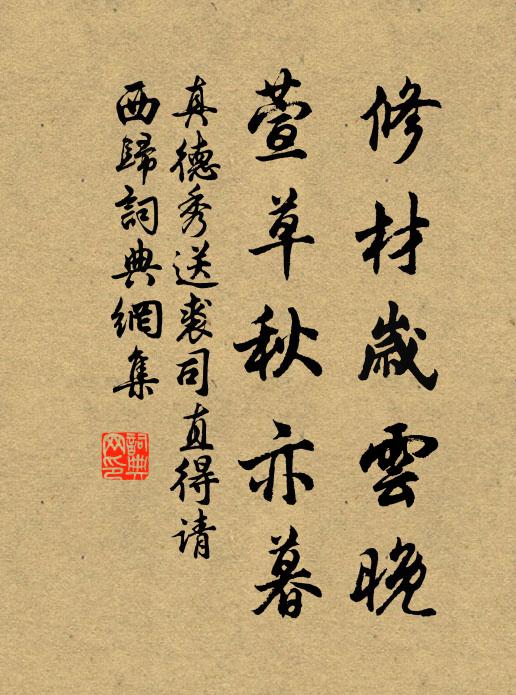 修材歲雲晚
萱草秋亦暮
真德秀送裘司直得请
西歸詞典網集
詞典
网印